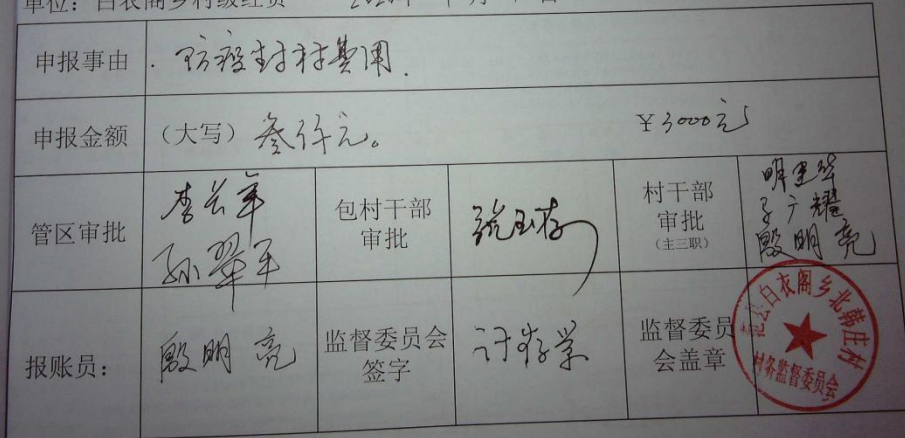 单位：白衣阁乡村级经费
申报事由 防疫封村费用.
申报金额 （大写）叁仟元。 ￥3000元
管区审批 李长军 孙翠平
包村干部审批 张玉存
村干部审批（主三职） 殷明亮
报账员： 殷明亮
监督委员会签字 许存学
监督委员会盖章
白衣阁乡北韩庄村
村务监督委员会